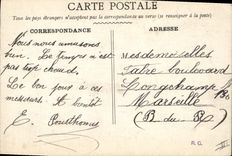 CARTE POSTALE
Tous les pays étrangers n'acceptent pas la correspondance au verso (se renseigner à la poste)
CORRESPONDANCE
Nous nous amusons
bien. Le temps n'est
pas trop chaud.
Le bon jour à ces
messieurs. A bientôt
E.
ADRESSE
Mesdemoiselles
Fabre boulevard
Longchamp
Marseille
(B. du R)
R.G.